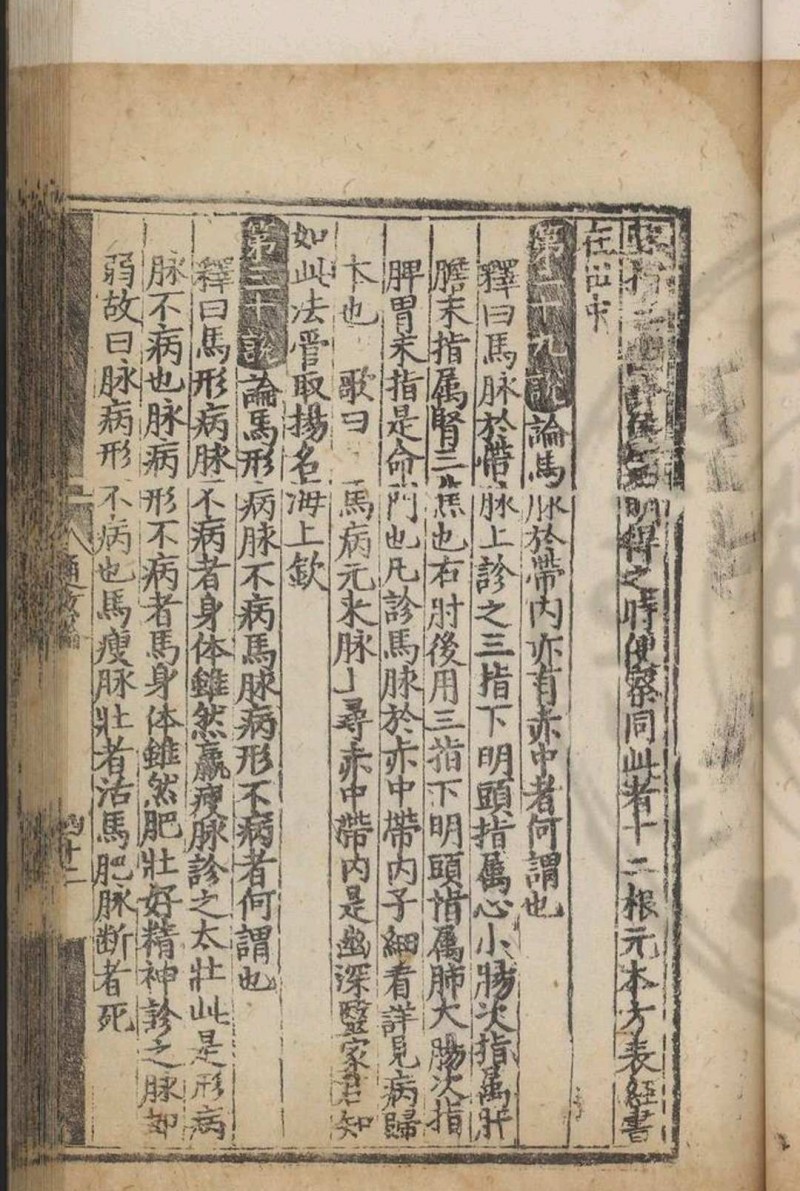 得之時便察同此者十二根元本方表經書
在其中
論馬脉於帶内亦有赤中者何謂也
釋曰馬脉於帶脉上診之三指下明頭指属心小膓次指属肝
膽末指属腎三焦也右肘後用三指下明頭指属肺大膓次指
脾胃末指是命門也凡診馬脉於赤中帶内子細看詳見病歸
也 歌曰 馬病元來脉上尋赤中帶内是幽深毉家君知
如此法管取揚名海上欽
第三十論馬形病脉不病馬脉病形不病者何謂也
釋曰馬形病脉不病者身体雖然羸瘦脉診之太壯此是形病
脉不病也脉病形不病者馬身体雖然肥壯好精神診之脉如
弱故曰脉病形不病也馬瘦脉壯者活馬肥脉断者死
八 通玄論
四十二